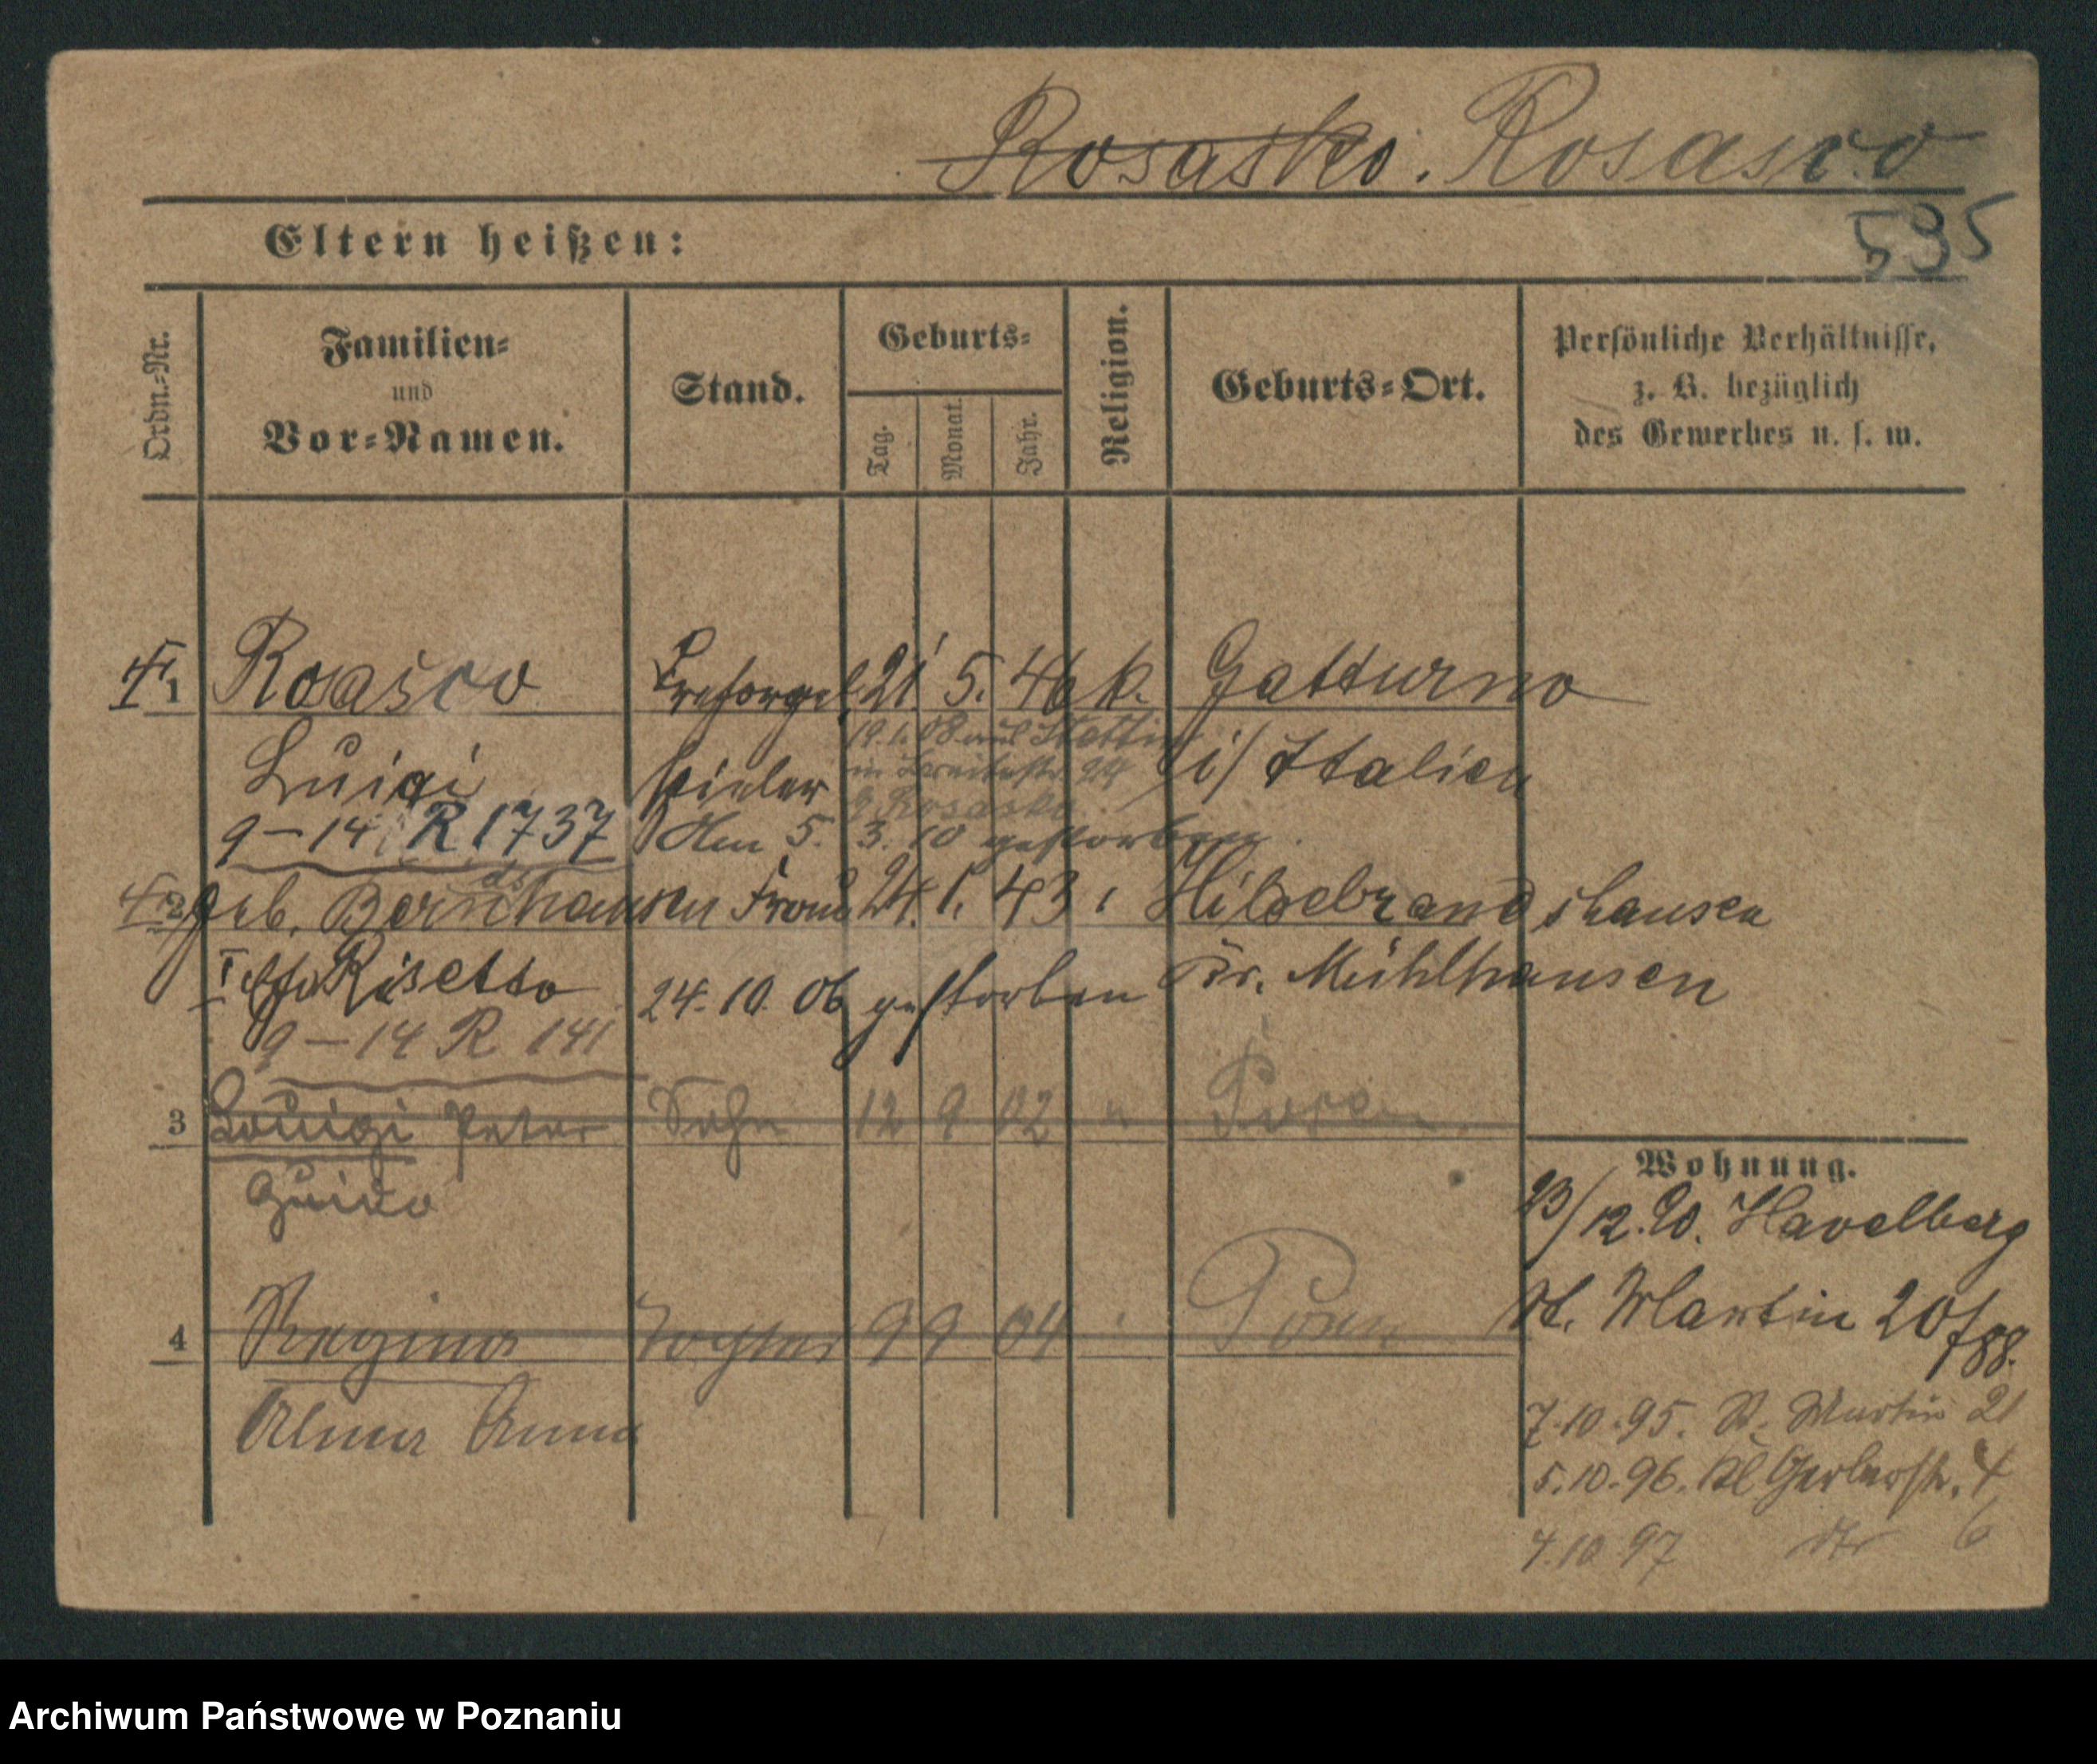 Rosasko. Rosasco
535
Eltern heißen:
Ordn.-Nr.
Familien-
und
Vor-Namen.
Stand.
Geburts-
Tag.
Monat.
Jahr.
Religion.
Geburts-Ort.
Persönliche Verhältnisse,
z. B. bezüglich
des Gewerbes u. s. w.
1 Rosasco 21 5. 46 k. Gatturno
Luigi spieler i/ Italien
19. 1. 08 aus Stettin
in Breitestr. 24
b. Rosasko
9-14 R 1737 Am 5. 3. 10 gestorben
2 geb. Bernshausen Frau 24. 1. 43 Hildebrandshausen
Risetto 24. 10. 06 gestorben Kr. Mühlhausen
9-14 R 141
3 Louigi Peter Sohn 12 9 02 Posen
Guido
4 Regina Tochter 9 9 04 Posen
Alma Anna
Wohnung.
23/12. 90. Havelberg
St. Martin 20/88.
7. 10. 95. St. Martin 21
5. 10. 96. Kl Gerberstr. 4
4. 10 97 6
Archiwum Państwowe w Poznaniu